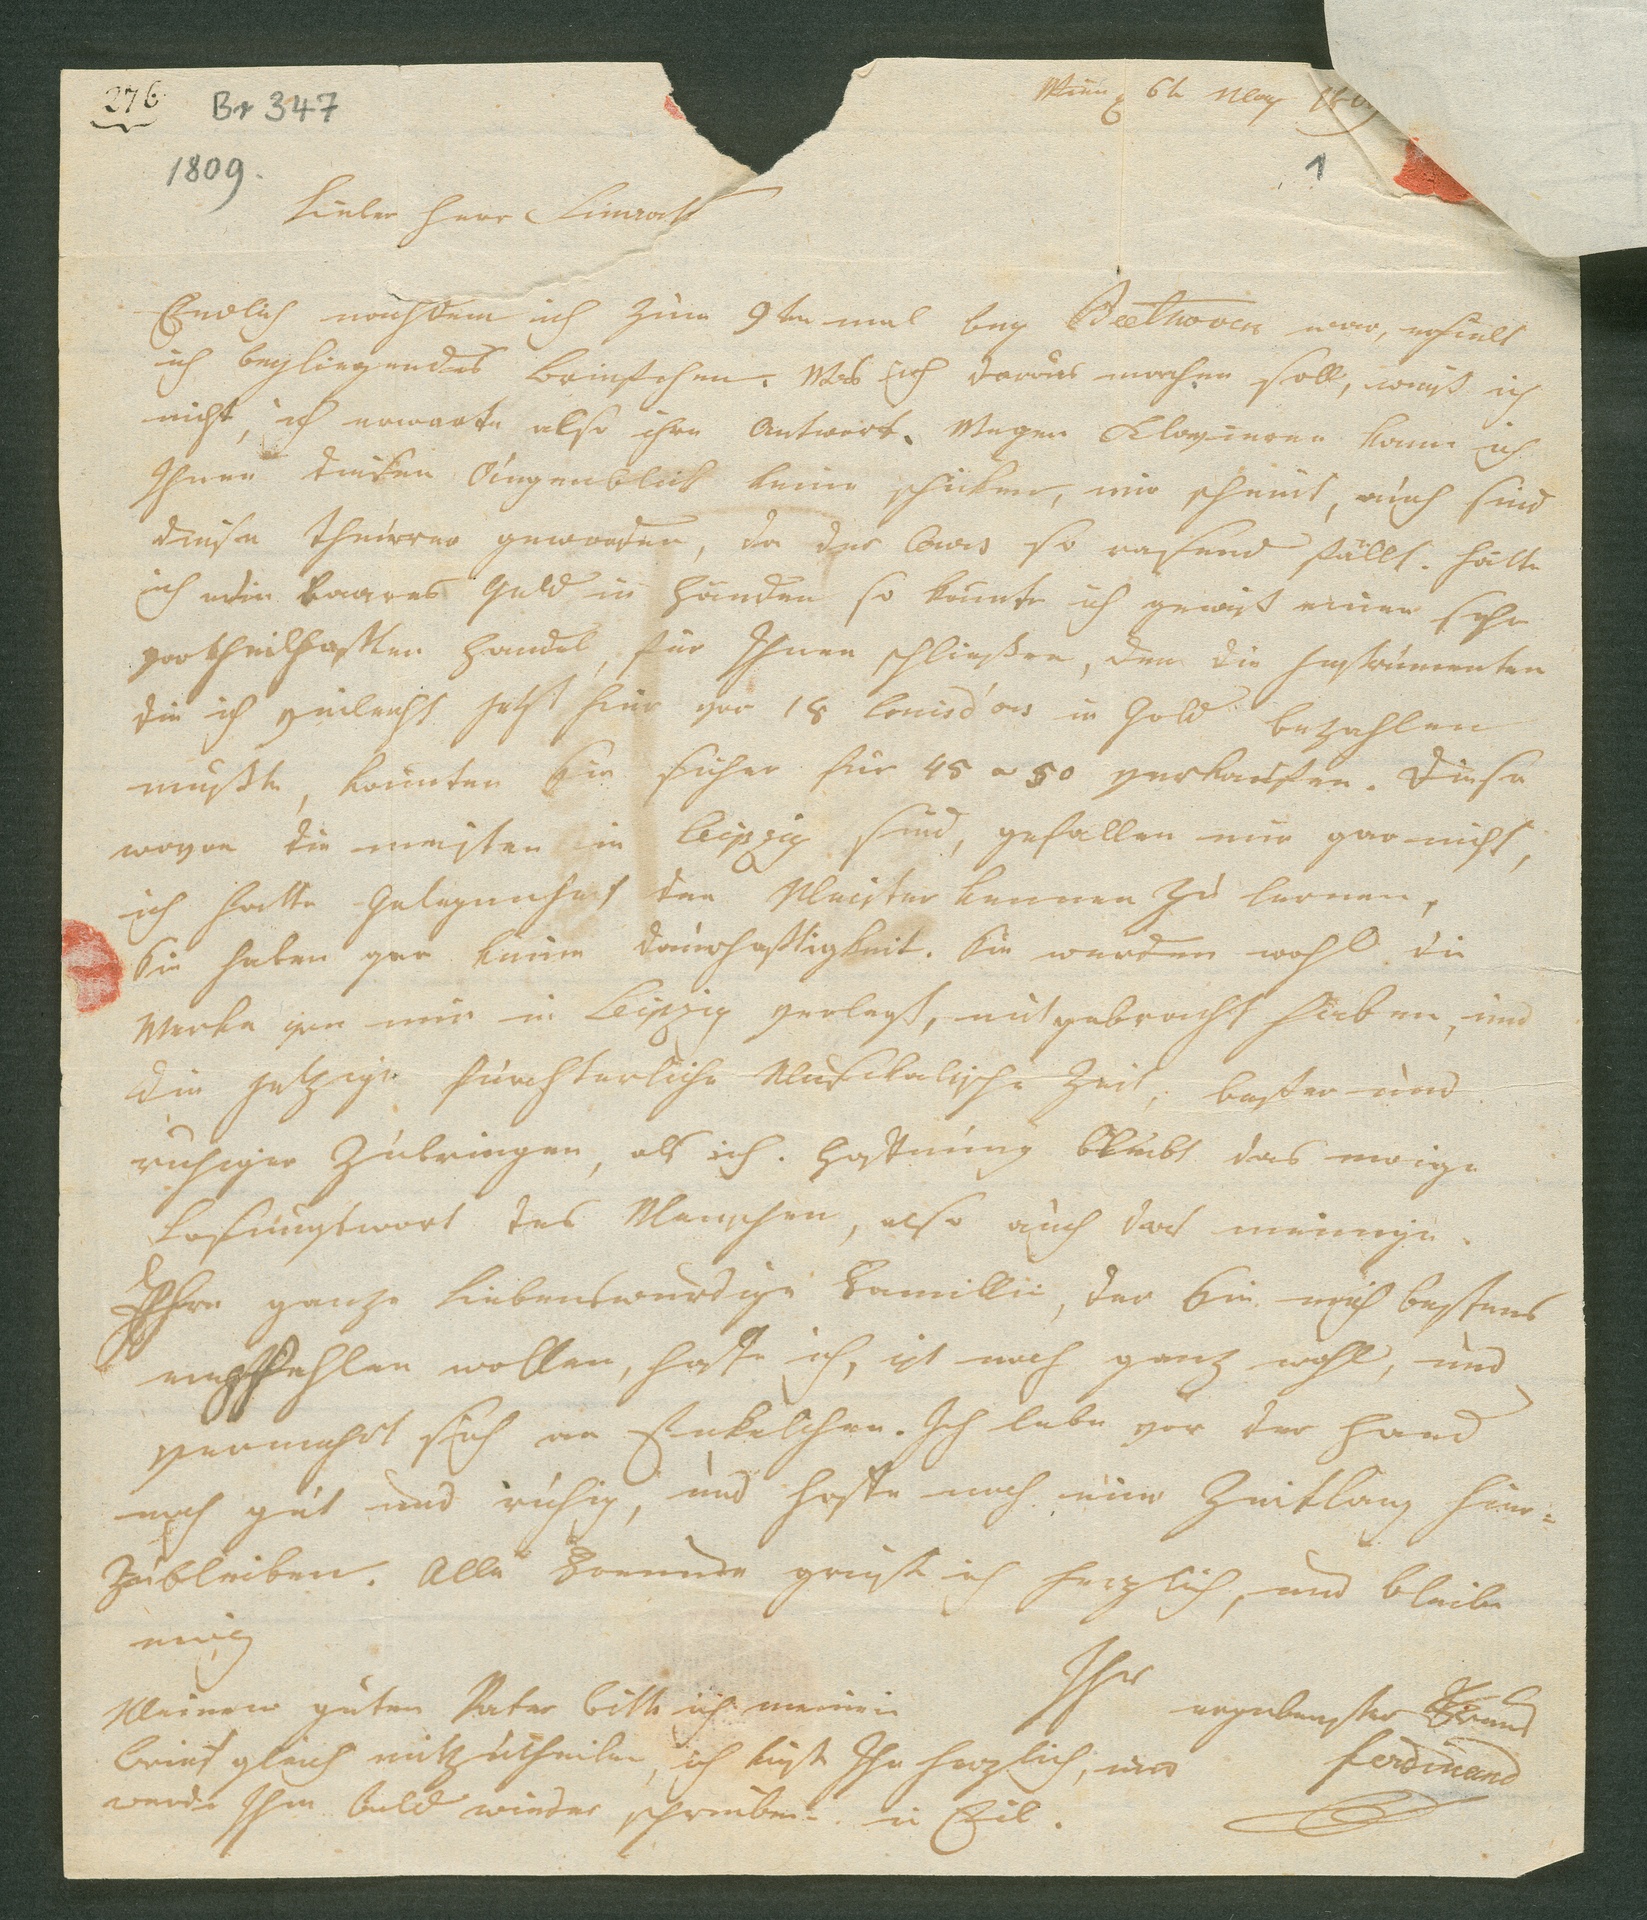 276
Br 347
Wien d 6t May 1809
1809.
1
Lieber Herr Simrock
Endlich nachdem ich zum 9ten mal bey Beethoven war, erhielt
ich beyliegendes Briefchen. Was ich daraus machen soll, weiß ich
nicht, ich erwarte also ihre Antwort. Wegen Klavieren kann ich
Ihnen diesen Augenblick keine schicken, wie scheint, auch sind
diese theurer geworden, da der Cours so rasend fällt. hätte
ich nur baares Geld in Händen so könnte ich gewiß einen sehr
vortheilhaften Handel, für Ihnen schließen, den die Instrumenten
die ich vieleicht jetzt hier vor 18 Louisd'ors in Gold bezahlen
müßte, könnten Sie sicher für 45 a 50 verkaufen. Diese
wovon die meisten in Leipzig sind, gefallen mir gar nicht,
ich hatte Gelegenheit den Meister kennen zu lernen,
Sie haben gar keine Dauerhaftigkeit. Sie werden wohl die
Werke von mir in Leipzig verlegt, mitgebracht haben, und
die jetzige fürchterliche Musickalische Zeit, besser und
ruhiger zubringen, als ich. Hoffnung bleibt das ewige
Losungswort des Menschen, also auch das meinige.
Ihre ganze liebenswürdige Famillie, der Sie mich bestens
empfehlen wollen, hoffe ich, ist noch ganz wohl, und
vermehrt sich an Enkelchen. Ich lebe vor der Hand
noch gut und ruhig, und hoffe noch eine Zeitlang hier=
zubleiben. Alle Freunde grüße ich herzlich, und bleibe
ewig
Ihr
ergebenster Freund
Ferdinand
Meinem guten Vater bitte ich meinen
Brief gleich mitzutheilen, ich küße Ihn herzlich, und
werde Ihm bald wieder schreiben. in Eil.